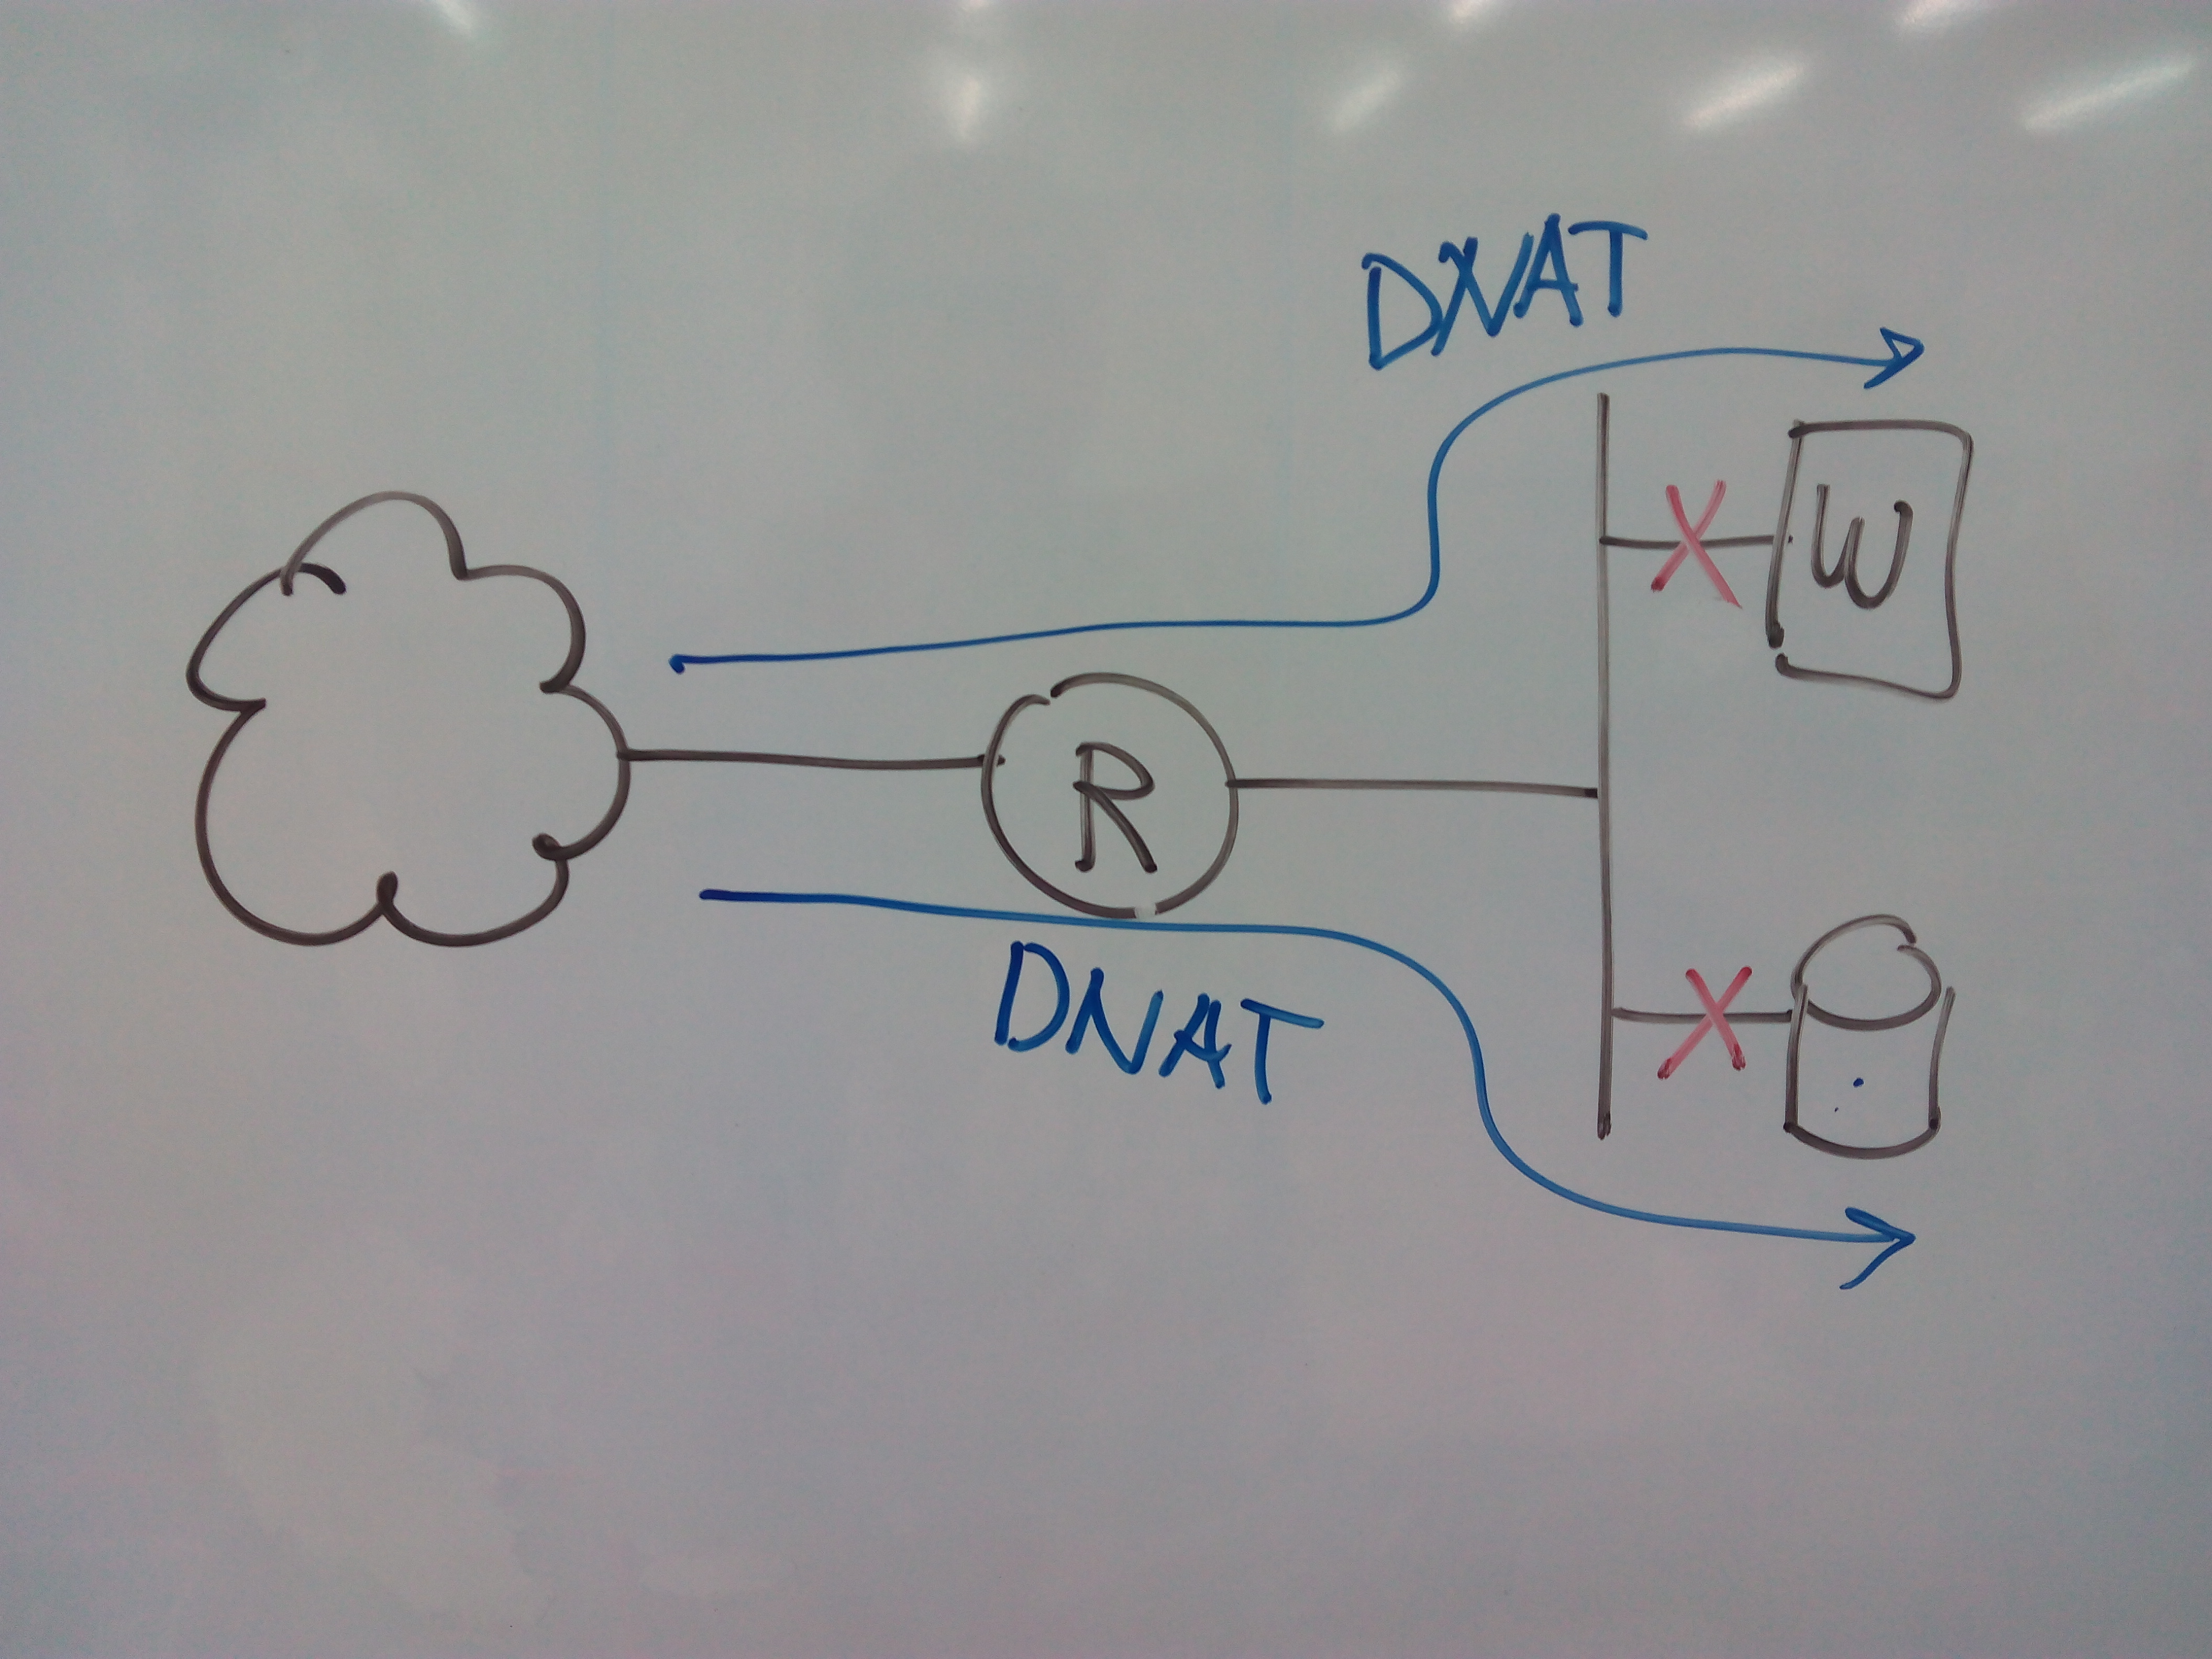 DNAT
W
R
DNAT